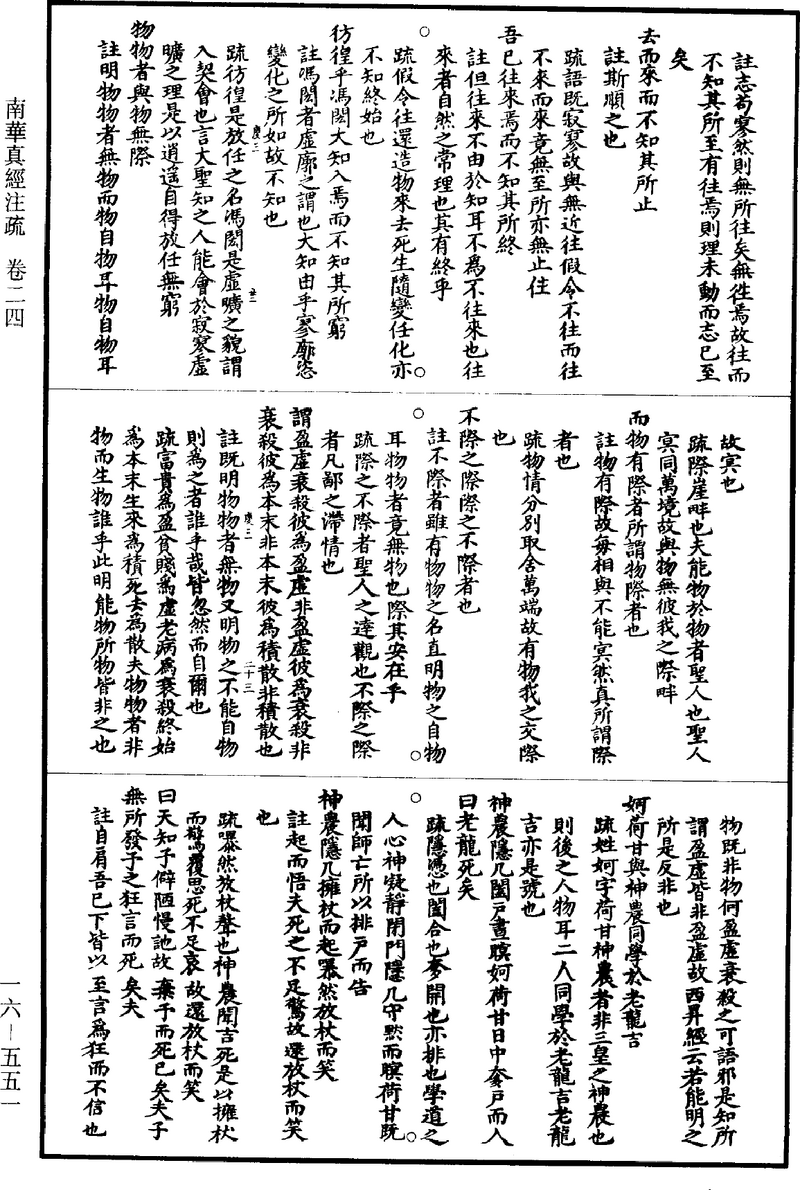 南華真經注疏　卷二四
註志苟寥然則無所往矣無徃焉故往而
不知其所至有往焉則理未動而志已至
矣
去而來而不知其所止
註斯順之也
疏語既寂寥故與無近往假令不往而往
不來而來竟無至所亦無止住
吾已往來焉而不知其所終
註但往來不由於知耳不為不往來也往
來者自然之常理也其有終乎
疏假令往還造物來去死生隨變任化亦
不知終始也
彷徨乎馮閎大知入焉而不知其所窮
註馮閎者虛廓之謂也大知由乎寥廓恣
變化之所如故不知也
疏彷徨是放任之名馮閎是虛曠之貌謂
入契會也言大聖知之人能會於寂寥虛
曠之理是以逍遥自得放任無窮
物物者與物無際
註明物物者無物而物自物耳物自物耳
故冥也
疏際崖畔也夫能物於物者聖人也聖人
冥同萬境故與物無彼我之際畔
而物有際者所謂物際者也
註物有際故每相與不能冥然真所謂際
者也
疏物情分別取舍萬端故有物我之交際
也
不際之際際之不際者也
註不際者雖有物物之名直明物之自物
耳物物者竟無物也際其安在乎
疏際之不際者聖人之達觀也不際之際
者凡鄙之滯情也
謂盈虛衰殺彼為盈虛非盈虛彼為衰殺非
衰殺彼為本末非本末彼為積散非積散也
註既明物物者無物又明物之不能自物
則為之者誰乎哉皆忽然而自爾也
疏富貴為盈貧賤為虛老病為衰殺終始
為本末生來為積死去為散夫物物者非
物而生物誰乎此明能物所物皆非之也
物既非物何盈虛衰殺之可語邪是知所
謂盈虛皆非盈虛故西昇經云若能明之
所是反非也
妸荷甘與神農同學於老龍吉
疏姓妸字荷甘神農者非三皇之神農也
則後之人物耳二人同學於老龍吉老龍
吉亦是號也
神農隱几闔戶晝瞑妸荷甘日中奓戶而入
曰老龍死矣
疏隱憑也闔合也奓開也亦排也學道之
人心神凝靜閉門隱几守默而瞑荷甘既
聞師亡所以排戶而告
神農隱几擁杖而起嚗然放杖而笑
註起而悟夫死之不足驚故還放杖而笑
也
疏嚗然放杖聲也神農聞吉死是以擁杖
而驚覆思死不足哀故還放杖而笑
曰天知予僻陋慢訑故棄予而死已矣夫子
無所發予之狂言而死矣夫
註自肩吾已下皆以至言為狂而不信也
一六－五五一